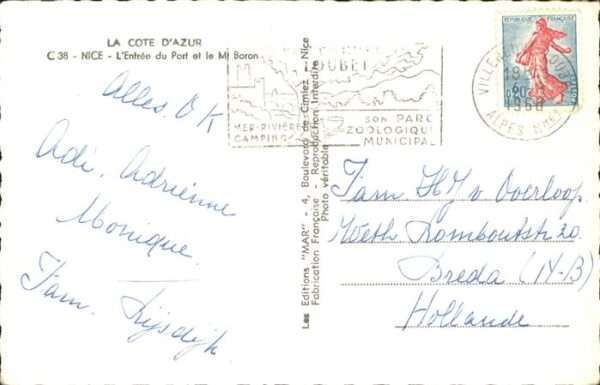 LA COTE D'AZUR
C 38 - NICE - L'Entrée du Port et le Mt Boron
Alles. O K
Adi. Adrienne
Monique.
Fam. Rijsdijk
Les Editions "MAR" - 4, Boulevard de Cimiez - Nice
Fabrication Française - Reproduction Interdite
Photo véritable
LOUBET
MER-RIVIÈRE
CAMPING
SON PARC
ZOOLOGIQUE
MUNICIPAL
REPUBLIQUE FRANÇAISE
0,20
POSTES
VILLENEUVE-LOUBET
ALPES MMES
Fam H J v Overloop.
Weth Romboutstr 20.
Breda (N-B)
Hollande